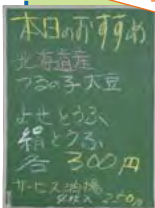 本日のおすすめ
北海道産
つるの子大豆
よせとうふ
絹とうふ
各 300円
サービス
250円